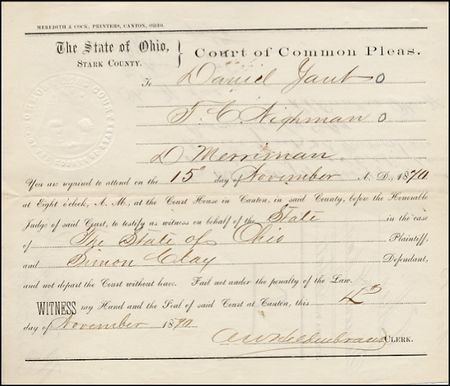 MEREDITH & COCK, PRINTERS, CANTON, OHIO.
The State of Ohio, } Court of Common Pleas.
STARK COUNTY.
To Daniel Yant o
F. C. Nighman o
D. Merriman
You are required to attend on the 15" day of November A. D., 1870
at Eight o'clock, A. M., at the Court House in Canton, in said County, before the Honorable
Judge of said Court, to testify as witness on behalf of the State in the case
of The State of Ohio Plaintiff,
and Simon Clay Defendant,
and not depart the Court without leave. Fail not under the penalty of the Law.
WITNESS my Hand and the Seal of said Court at Canton, this
day of November 1870
CLERK.